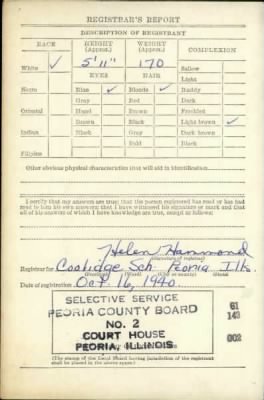 REGISTRAR'S REPORT
DESCRIPTION OF REGISTRANT
RACE HEIGHT (Approx.) WEIGHT (Approx.) COMPLEXION
White ✓ 5'11" 170 Sallow
EYES HAIR Light
Negro Blue ✓ Blonde ✓ Ruddy
Gray Red Dark
Oriental Hazel Brown Freckled
Brown Black Light brown ✓
Indian Black Gray Dark brown
Bald Black
Filipino
Other obvious physical characteristics that will aid in identification
I certify that my answers are true; that the person registered has read or has had
read to him his own answers; that I have witnessed his signature or mark and that
all of his answers of which I have knowledge are true, except as follows:
Helen Hammond
(Signature of registrar)
Registrar for Coolidge Sch. Peoria Ills.
(Precinct) (Ward) (City or county) (State)
Date of registration Oct. 16, 1940
SELECTIVE SERVICE
PEORIA COUNTY BOARD
NO. 2
COURT HOUSE
PEORIA, ILLINOIS
61
143
002
(The stamp of the Local Board having jurisdiction of the registrant
shall be placed in the above space.)